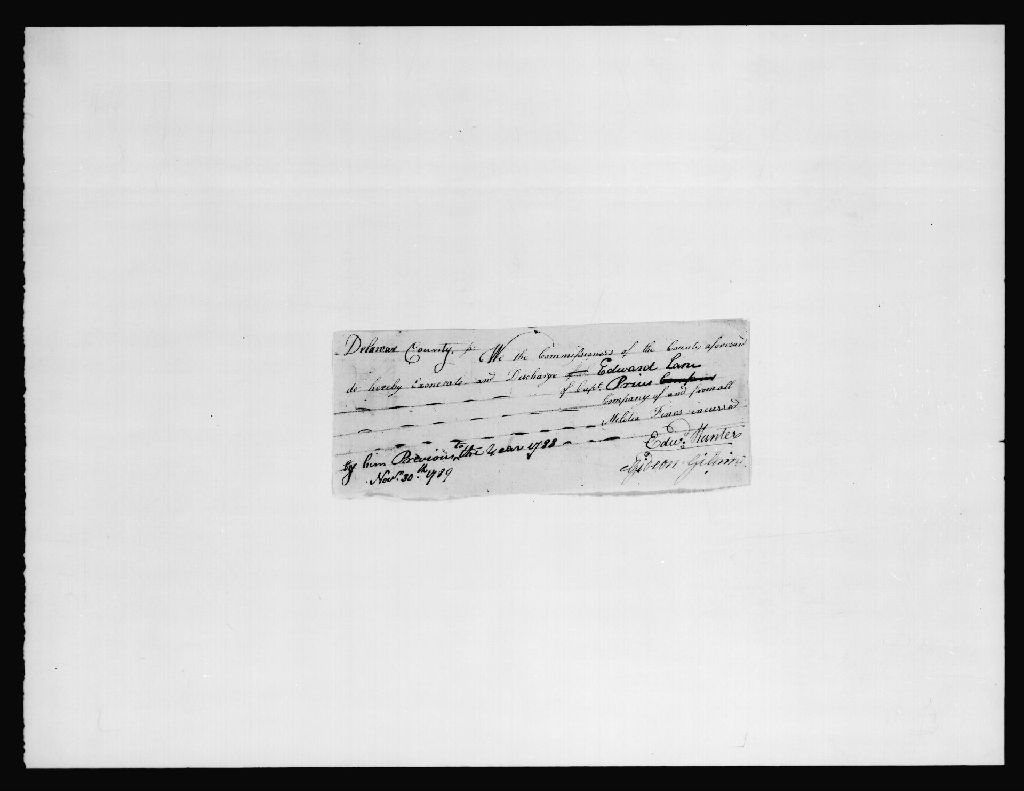 Delawar County, ss We the Commissioners of the County aforesaid
do hereby Exonerate and Discharge Edward Lane
of Capt. Prices Company
Company of and from all
Militia Fines incurred
by him Previous to the Year 1788
Novr. 30th 1789
Edwd. Hunter
Gideon Gilpin